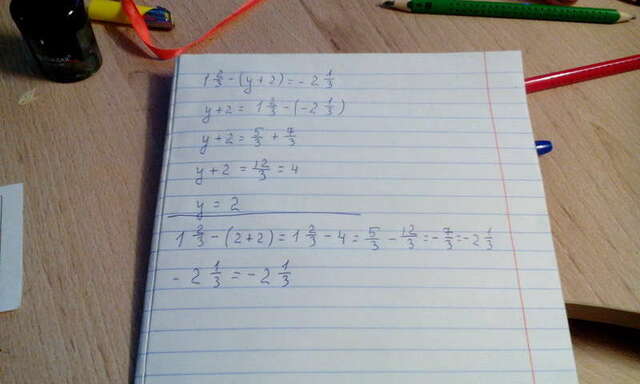 1 2/3 - (y + 2) = - 2 1/3
y + 2 = 1 2/3 - (- 2 1/3)
y + 2 = 5/3 + 7/3
y + 2 = 12/3 = 4
y = 2
1 2/3 - (2 + 2) = 1 2/3 - 4 = 5/3 - 12/3 = - 7/3 = - 2 1/3
- 2 1/3 = - 2 1/3